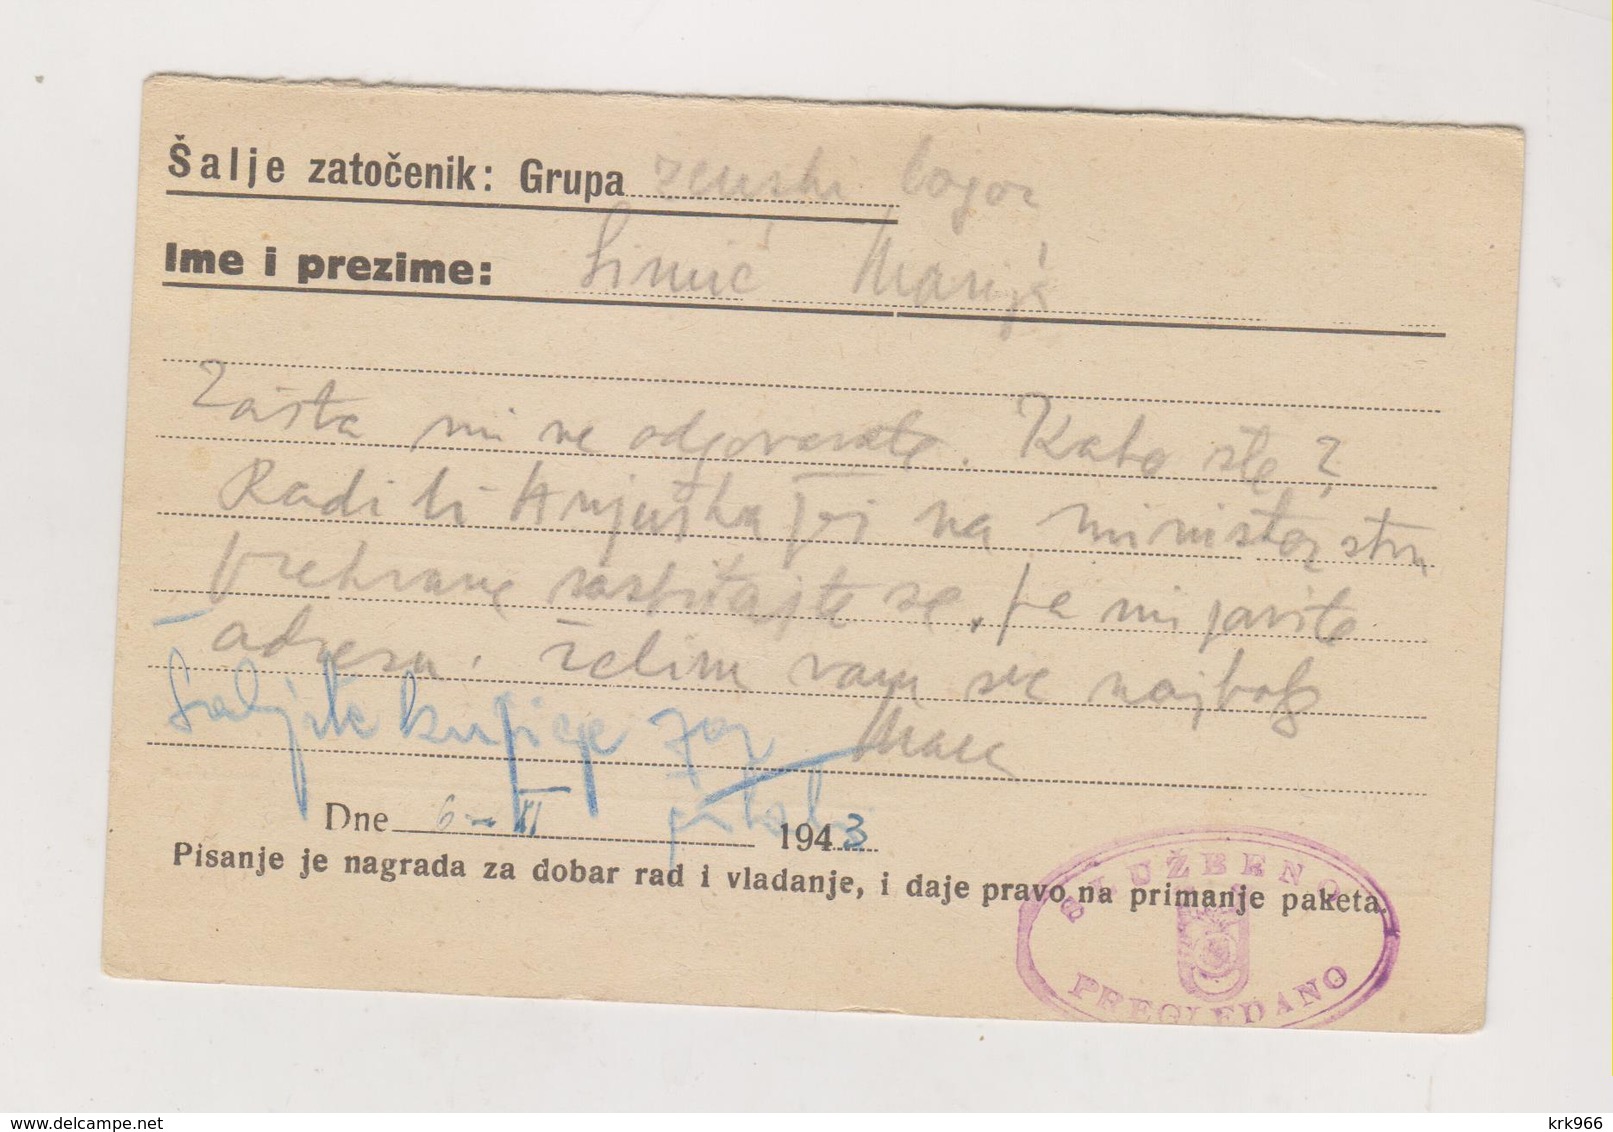 Šalje zatočenik: Grupa ženski logor
Ime i prezime: Simić Marija
Zašto mi ne odgovarate. Kako ste?
Radi li Anjuška još na ministarstvu
prehrane raspitajte se, pa mi javite
adresu. Želim vam sve najbolje
Šaljite kupice za Mara
Dne 6-XI 1943
Pisanje je nagrada za dobar rad i vladanje, i daje pravo na primanje paketa.
SLUŽBENO
PREGLEDANO
delcampe.net
krk966